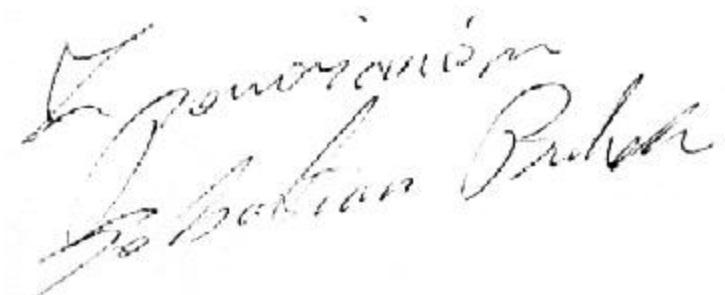 Z poważaniem
Sebastian